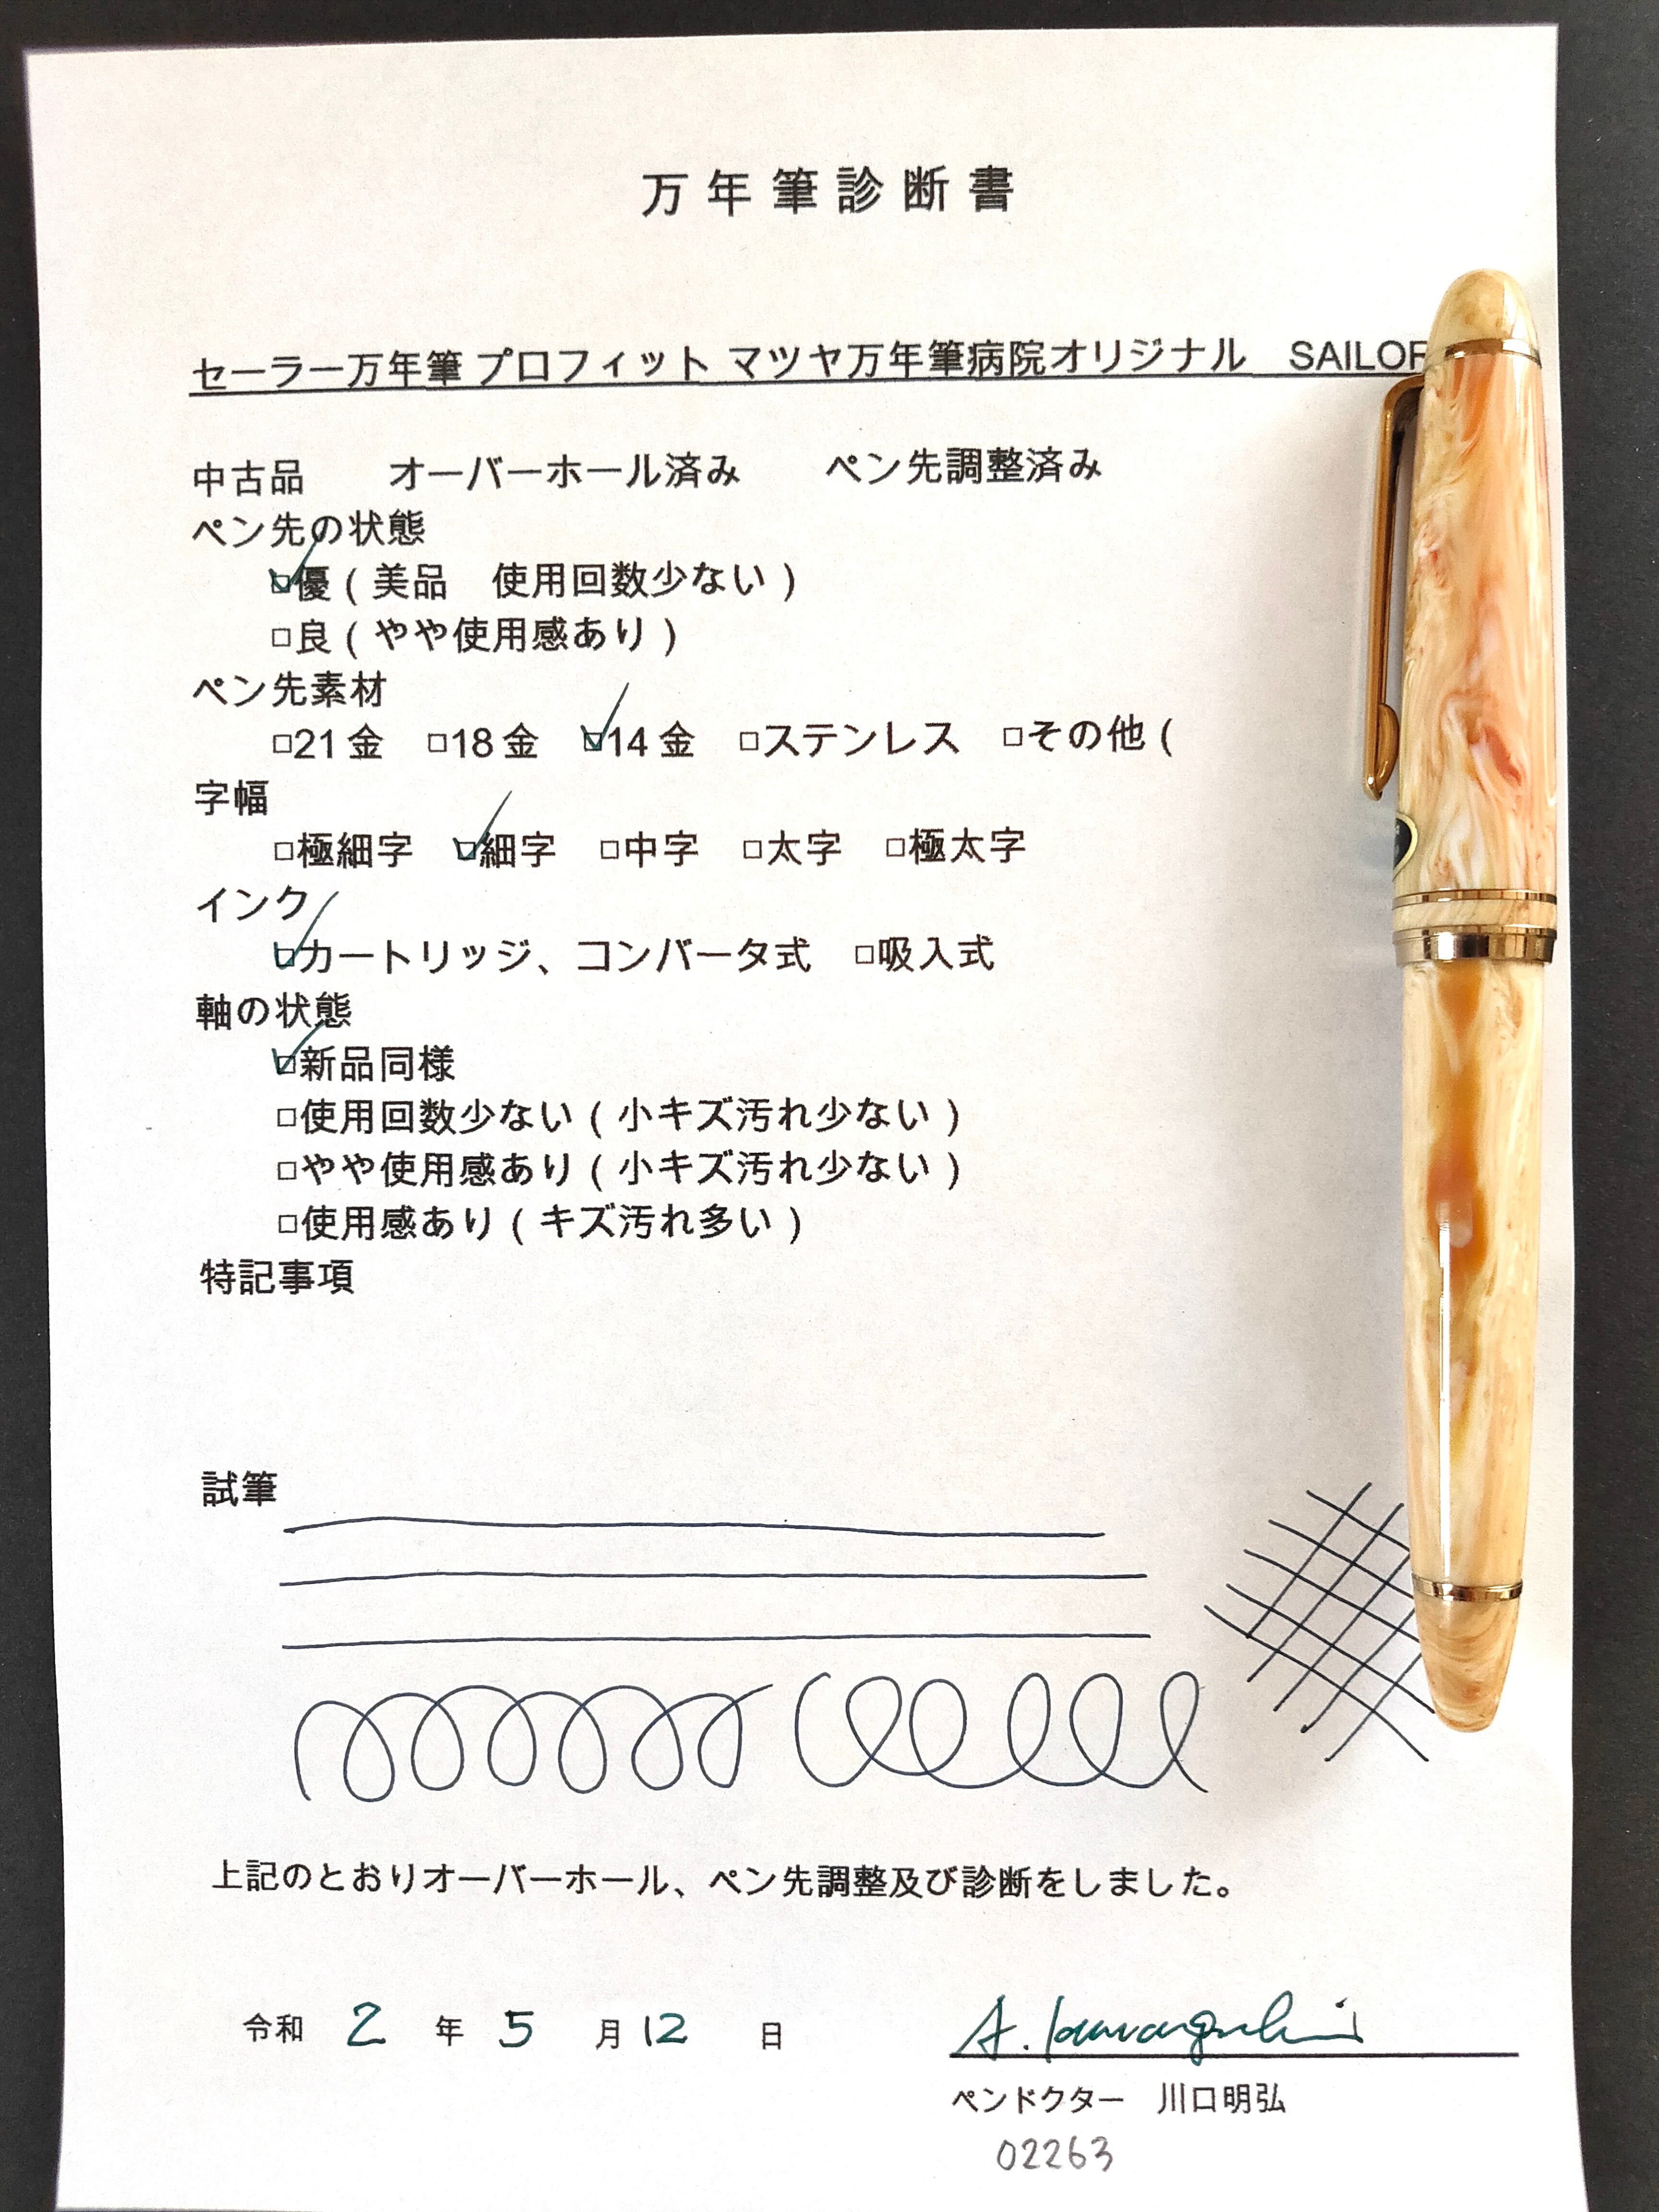 万年筆診断書
セーラー万年筆 プロフィット マツヤ万年筆病院オリジナル SAILOR
中古品 オーバーホール済み ペン先調整済み
ペン先の状態
☑優(美品 使用回数少ない)
□良(やや使用感あり)
ペン先素材
□21金 □18金 ☑14金 □ステンレス □その他(
字幅
□極細字 ☑細字 □中字 □太字 □極太字
インク
☑カートリッジ、コンバータ式 □吸入式
軸の状態
☑新品同様
□使用回数少ない(小キズ汚れ少ない)
□やや使用感あり(小キズ汚れ少ない)
□使用感あり(キズ汚れ多い)
特記事項
試筆
上記のとおりオーバーホール、ペン先調整及び診断をしました。
令和 2 年 5 月 12 日
A. Kawaguchi
ペンドクター 川口明弘
02263